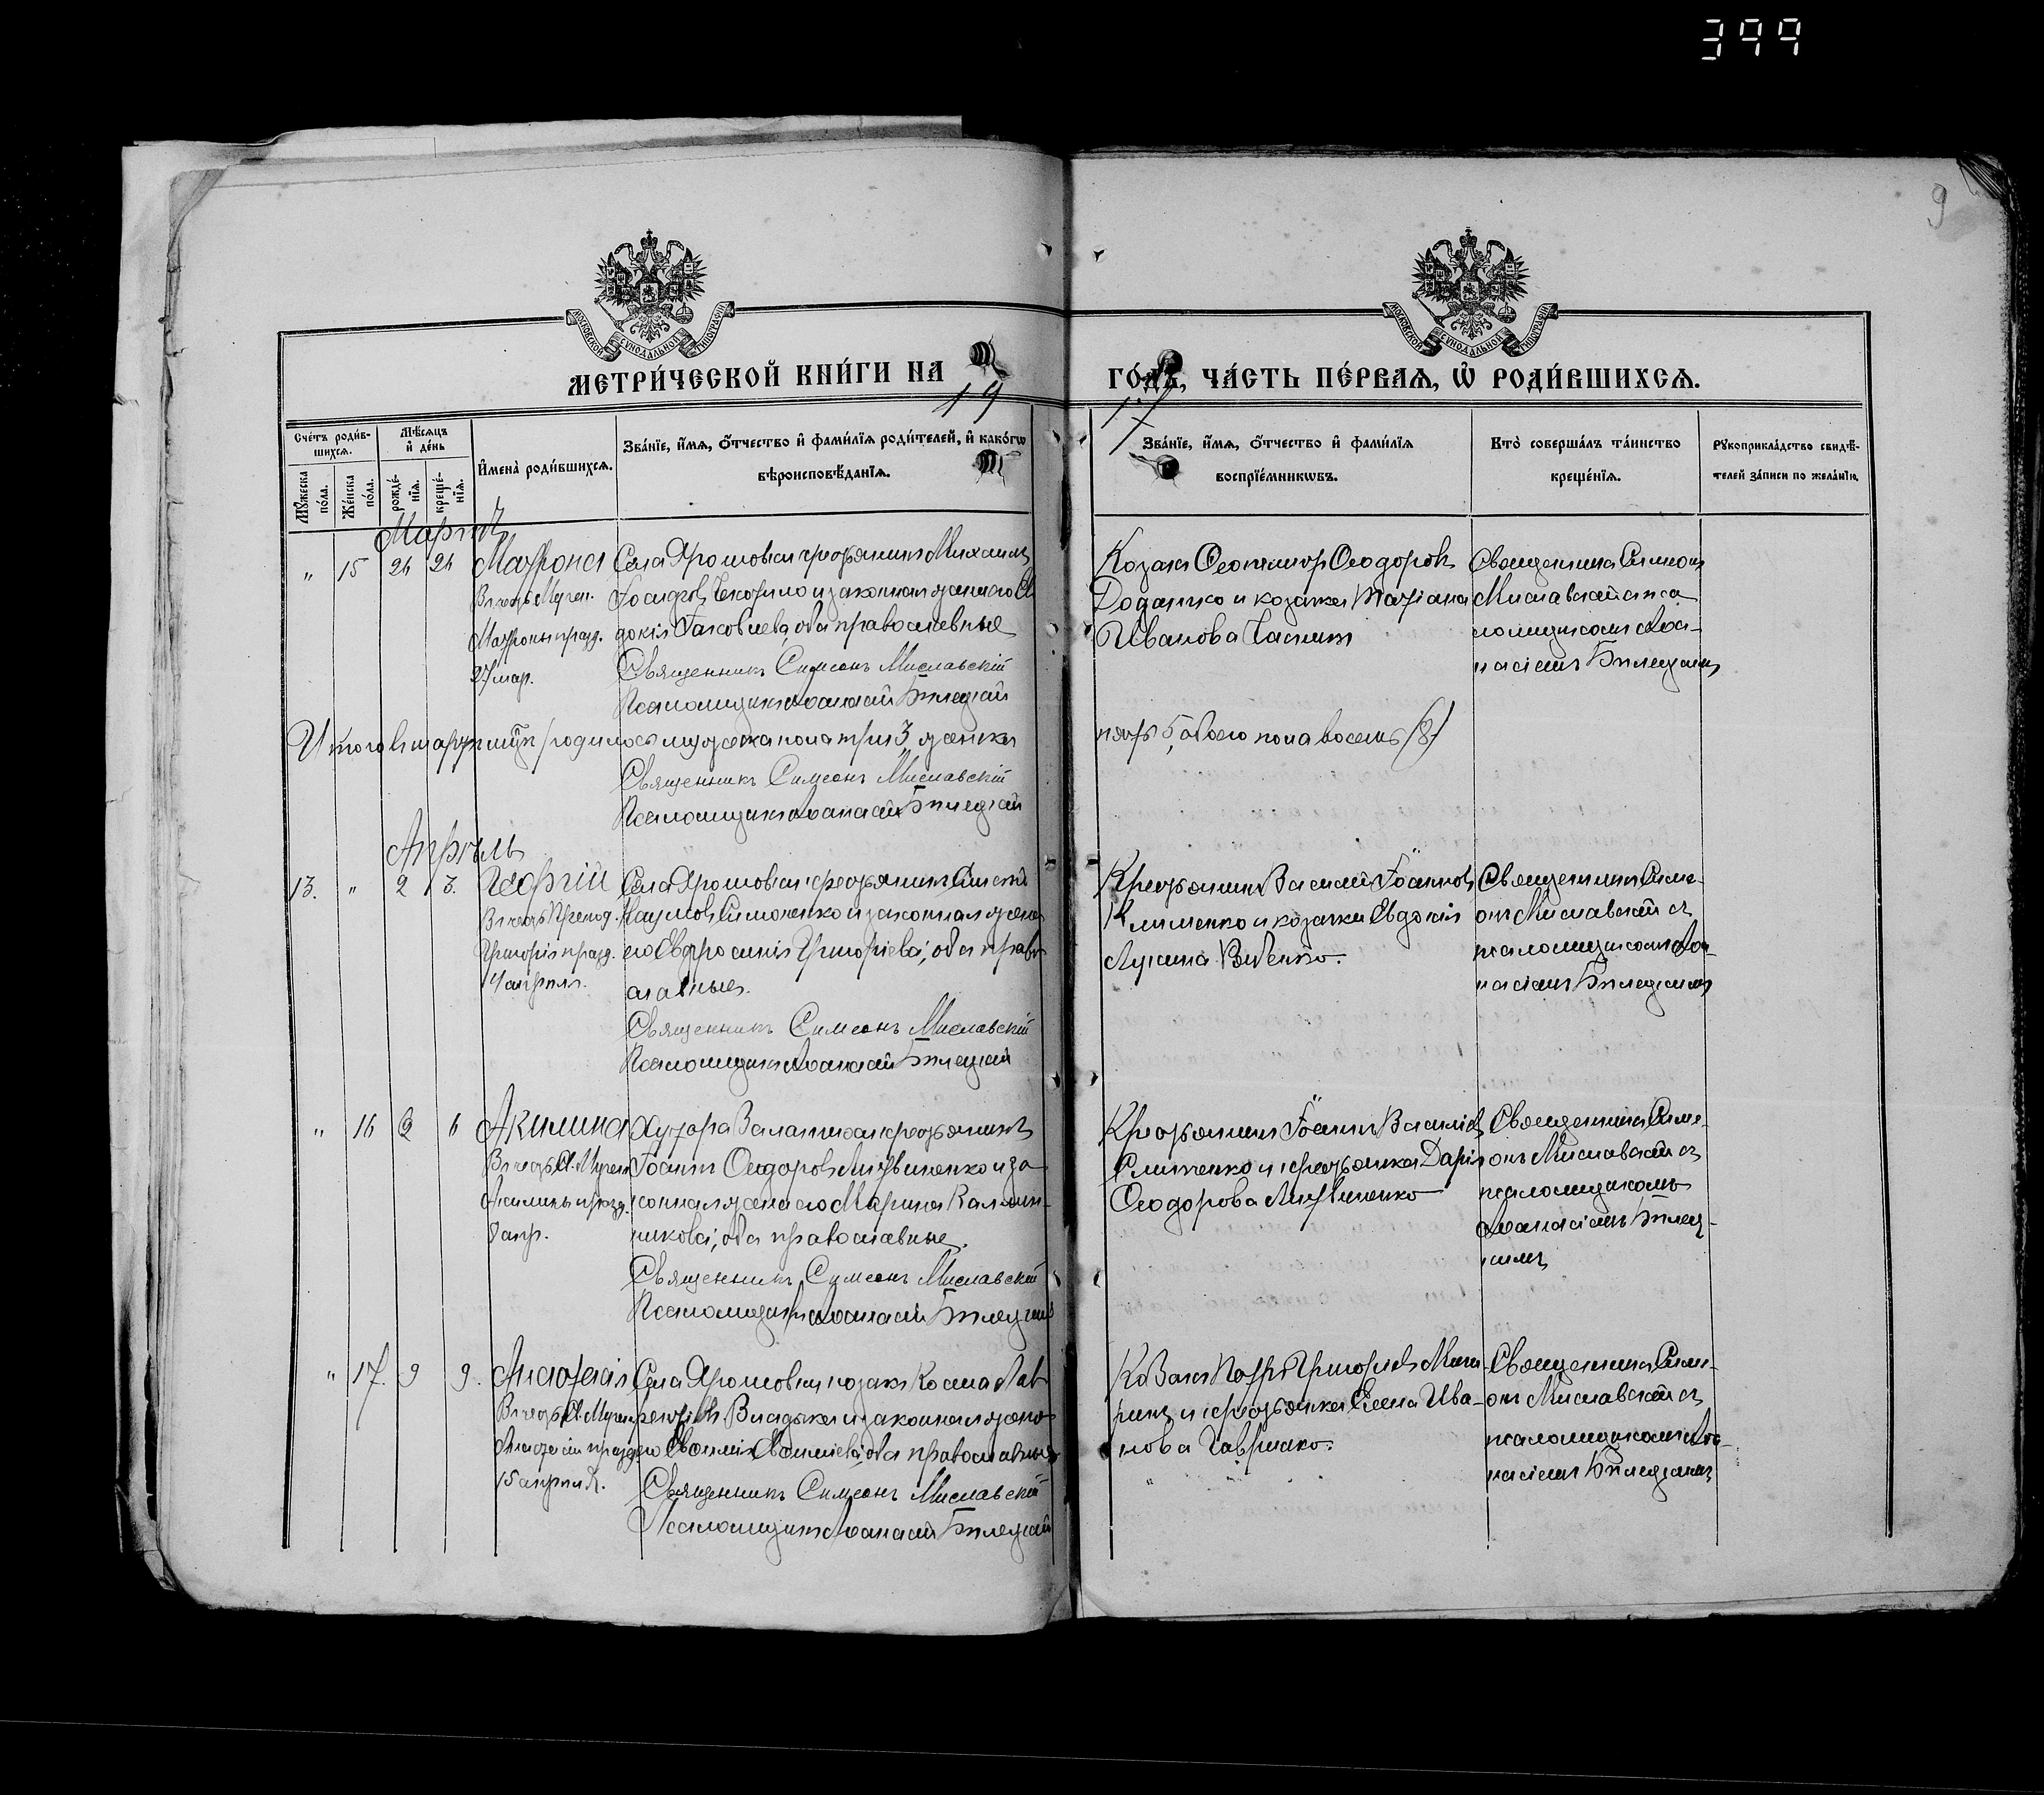 399
9
МОСКОВСКОЙ СУНОДАЛЬНОЙ ТИПОГРАФІИ
МОСКОВСКОЙ СУНОДАЛЬНОЙ ТИПОГРАФІИ
МЕТРИ́ЧЕСКОЙ КНИ́ГИ НА 19
17 ГО́ДЪ, ЧА́СТЬ ПЕ́РВАЯ, Ѡ҆ РОДИ́ВШИХСѦ.
Сче́тъ роди́в-
шихсѧ.
Мꙋ́жеска
по́ла.
Же́нска
по́ла.
Мѣ́сѧцъ
и҆ де́нь
рожде́-
нїѧ.
креще́-
нїѧ.
И҆мена̀ роди́вшихсѧ.
Зва́нїе, и҆́мѧ, ѻ҆́тчество и҆ фами́лїѧ роди́телей, и҆ како́гѡ
вѣроисповѣ́данїѧ.
Зва́нїе, и҆́мѧ, ѻ҆́тчество и҆ фами́лїѧ
воспрїе́мникѡвъ.
Кто̀ соверша́лъ та́инство
креще́нїѧ.
Рꙋкоприкла́дство свидѣ́-
телей за́писи по жела́нїю.
Мартъ
" 15 24 24 Матрона
Въ честь Мучен.
Матроны празд.
27 мар.
Села Ярошовки крестьянинъ Михаилъ
законная жена его Ев
докія Іаковлева, оба православные
Священникъ Симеонъ Миславскій
Псаломщикъ Аѳанасій Билецкій
Козакъ Ѳеодоровъ
и козачка Татіана
Иванова
Священникъ Симеонъ
Миславскій съ пса
ломщикомъ Аѳа-
насіемъ Билецкимъ
Итого въ мартѣ родилось мужеска пола три 3, женска
пять 5, обоего пола восемь (8)
Священникъ Симеонъ Миславскій
Псаломщикъ Аѳанасій Билецкій
Апрѣль
13. " 2 3. Георгій
Въ честь Препод.
Георгія празд.
4 апрѣля.
Села Ярошовки крестьянинъ
Наумовъ Симоненко и законная жена
его Евфросинія Григоріева, оба право
славные.
Священникъ Симеонъ Миславскій
Псаломщикъ Аѳанасій Билецкій
Крестьянинъ Василій Іоанновъ
Клименко и козачка Евдокія
Лукина
Священникъ Симе-
онъ Миславскій съ
псаломщикомъ Аѳа-
насіемъ Билецкимъ
" 16 6 6 Акилина
Въ честь Св. Мучен.
Акилины празд.
апр.
Хутора крестьянинъ
Іоаннъ Ѳеодоровъ Литвиненко и за
конная жена его Марина Каллин-
никова, оба православные.
Священникъ Симеонъ Миславскій
Псаломщикъ Аѳанасій Билецкій
Крестьянинъ Іоаннъ Василіевъ
и крестьянка Дарія
Ѳеодорова Литвиненко
Священникъ Симе-
онъ Миславскій съ
псаломщикомъ
Аѳанасіемъ Билец-
кимъ
" 17. 9 9. Анастасія
Въ честь Св. Мучен.
Анастасіи празд.
15 апрѣля.
Села Ярошовки козакъ Косма Лав
рентіевъ и законная жена
его оба православные
Священникъ Симеонъ Миславскій
Псаломщикъ Аѳанасій Билецкій
Козакъ Петръ Григоріевъ
и крестьянка Елена Ива-
нова
Священникъ Симе-
онъ Миславскій съ
псаломщикомъ Аѳа-
насіемъ Билецкимъ